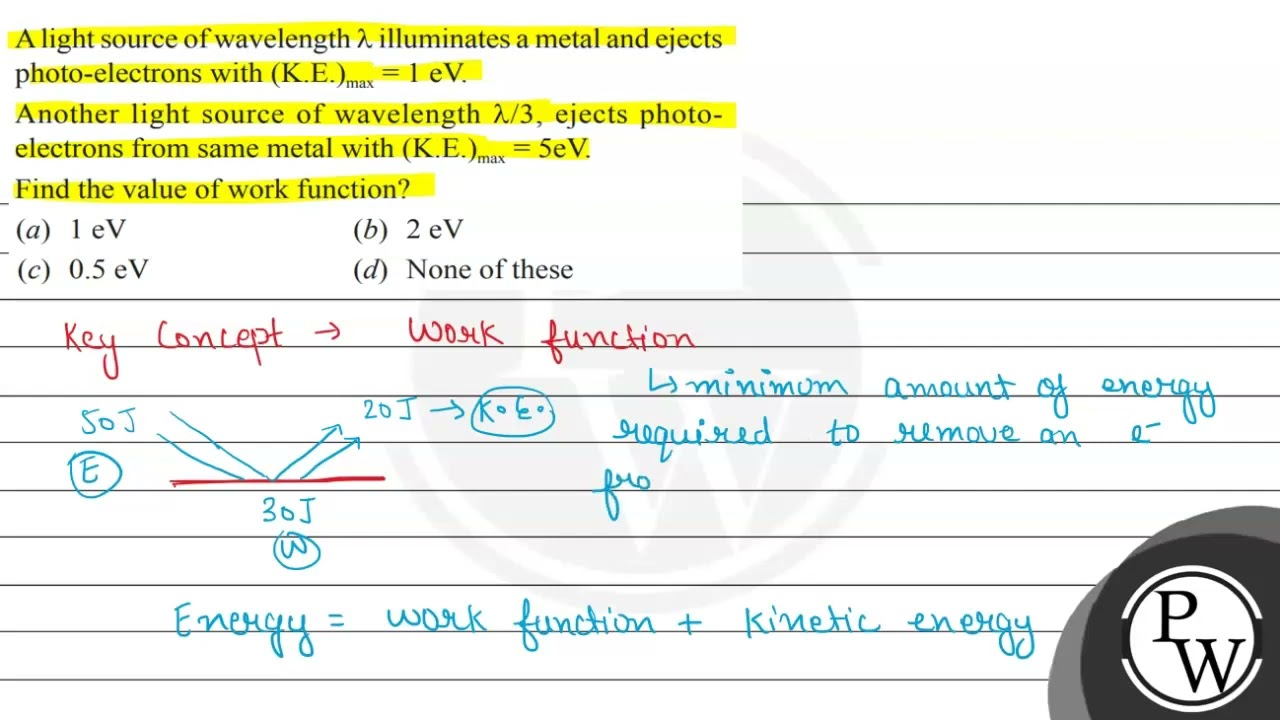 A light source of wavelength λ illuminates a metal and ejects
photo-electrons with (K.E.)max = 1 eV.
Another light source of wavelength λ/3, ejects photo-
electrons from same metal with (K.E.)max = 5eV.
Find the value of work function?
(a) 1 eV (b) 2 eV
(c) 0.5 eV (d) None of these
Key Concept → Work function
↳ minimum amount of energy
required to remove an e⁻
fro
50J
20J → K.E.
E
30J
W
Energy = work function + kinetic energy
P
W